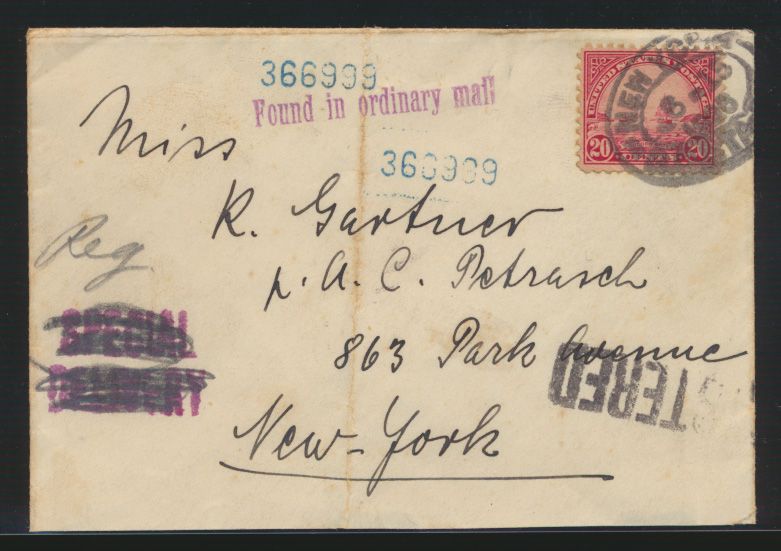 366999
Found in ordinary mail
NEW YORK
UNITED STATES POSTAGE
20 CENTS 20
Miss
366999
R. Gartner
Reg.
p. A. C. Petrasch
SPECIAL
863 Park Avenue
DELIVERY
TERED
New-York